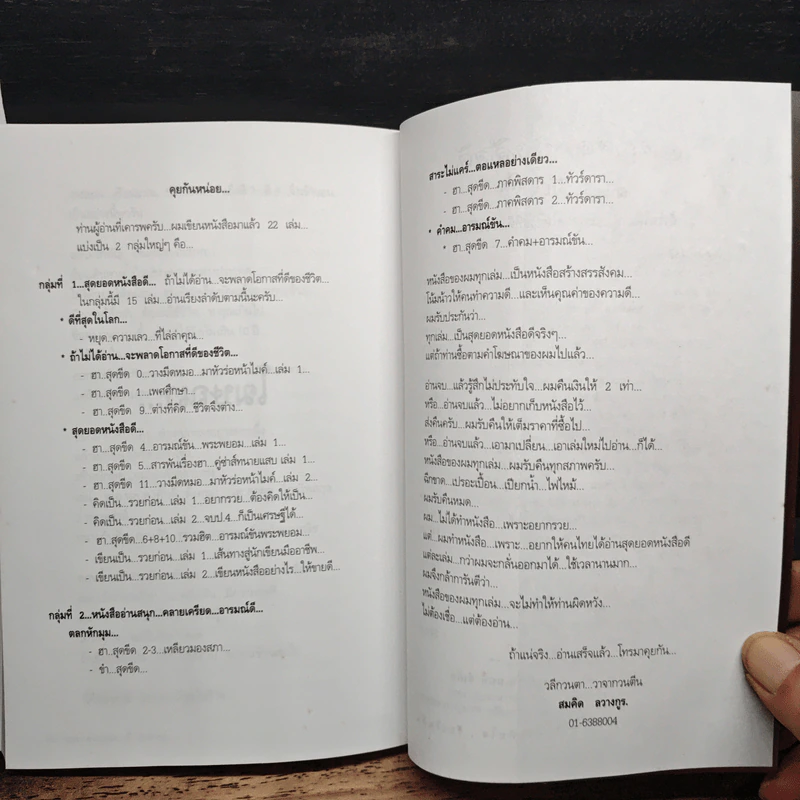 คุยกันหน่อย...
ท่านผู้อ่านที่เคารพครับ...ผมเขียนหนังสือมาแล้ว 22 เล่ม...
แบ่งเป็น 2 กลุ่มใหญ่ๆ คือ...
กลุ่มที่ 1...สุดยอดหนังสือดี... ถ้าไม่ได้อ่าน...จะพลาดโอกาสที่ดีของชีวิต...
ในกลุ่มนี้มี 15 เล่ม...อ่านเรียงลำดับตามนี้นะครับ...
* ดีที่สุดในโลก...
- หยุด...ความเลว...ที่ไล่ล่าคุณ...
* ถ้าไม่ได้อ่าน...จะพลาดโอกาสที่ดีของชีวิต...
- ฮา..สุดขีด 0...วางมีดหมอ...มาหัวร่อหน้าไมค์ เล่ม 1...
- ฮา..สุดขีด 1...เพศศึกษา...
- ฮา..สุดขีด 9...ต่างที่คิด...ชีวิตจึงต่าง...
* สุดยอดหนังสือดี...
- ฮา...สุดขีด 4...อารมณ์ขัน...พระพยอม...เล่ม 1...
- ฮา...สุดขีด 5...สารพันเรื่องฮา...คู่ซ่าส์ทนายแสบ เล่ม 1...
- ฮา...สุดขีด 11...วางมีดหมอ...มาหัวร่อหน้าไมค์...เล่ม 2...
- คิดเป็น...รวยก่อน...เล่ม 1...อยากรวย...ต้องคิดให้เป็น...
- คิดเป็น...รวยก่อน...เล่ม 2...จบป.4...ก็เป็นเศรษฐีได้...
- ฮา...สุดขีด...6+8+10...รวมฮิต...อารมณ์ขันพระพยอม...
- เขียนเป็น...รวยก่อน...เล่ม 1...เส้นทางสู่นักเขียนมืออาชีพ...
- เขียนเป็น...รวยก่อน...เล่ม 2...เขียนหนังสืออย่างไร...ให้ขายดี...
กลุ่มที่ 2...หนังสืออ่านสนุก...คลายเครียด...อารมณ์ดี...
ตลกหักมุม...
- ฮา..สุดขีด 2-3...เหลียวมองสภา...
- ขำ...สุดขีด...
สาระไม่แคร์...ตอแหลอย่างเดียว...
- ฮา...สุดขีด...ภาคพิสดาร 1...ทัวร์ดารา...
- ฮา...สุดขีด...ภาคพิสดาร 2...ทัวร์ดารา...
* คำคม...อารมณ์ขัน...
* ฮา..สุดขีด 7...คำคม+อารมณ์ขัน...
หนังสือของผมทุกเล่ม...เป็นหนังสือสร้างสรรสังคม...
โน้มน้าวให้คนทำความดี...และเห็นคุณค่าของความดี...
ผมรับประกันว่า...
ทุกเล่ม...เป็นสุดยอดหนังสือดีจริงๆ...
แต่ถ้าท่านซื้อตามคำโฆษณาของผมไปแล้ว...
อ่านจบ...แล้วรู้สึกไม่ประทับใจ...ผมคืนเงินให้ 2 เท่า...
หรือ..อ่านจบแล้ว...ไม่อยากเก็บหนังสือไว้...
ส่งคืนครับ...ผมรับคืนให้เต็มราคาที่ซื้อไป...
หรือ...อ่านจบแล้ว...เอามาเปลี่ยน...เอาเล่มใหม่ไปอ่าน...ก็ได้...
หนังสือของผมทุกเล่ม...ผมรับคืนทุกสภาพครับ...
ฉีกขาด...เปรอะเปื้อน...เปียกน้ำ...ไฟไหม้...
ผมรับคืนหมด...
ผม...ไม่ได้ทำหนังสือ...เพราะอยากรวย...
แต่...ผมทำหนังสือ...เพราะ...อยากให้คนไทยได้อ่านสุดยอดหนังสือดี
แต่ละเล่ม...กว่าผมจะกลั่นออกมาได้...ใช้เวลานานมาก...
ผมจึงกล้าการันตีว่า...
หนังสือของผมทุกเล่ม...จะไม่ทำให้ท่านผิดหวัง...
ไม่ต้องเชื่อ...แต่ต้องอ่าน...
ถ้าแน่จริง...อ่านเสร็จแล้ว...โทรมาคุยกัน...
วลีกวนตา...วาจากวนตีน
สมคิด ลวางกูร.
01-6388004